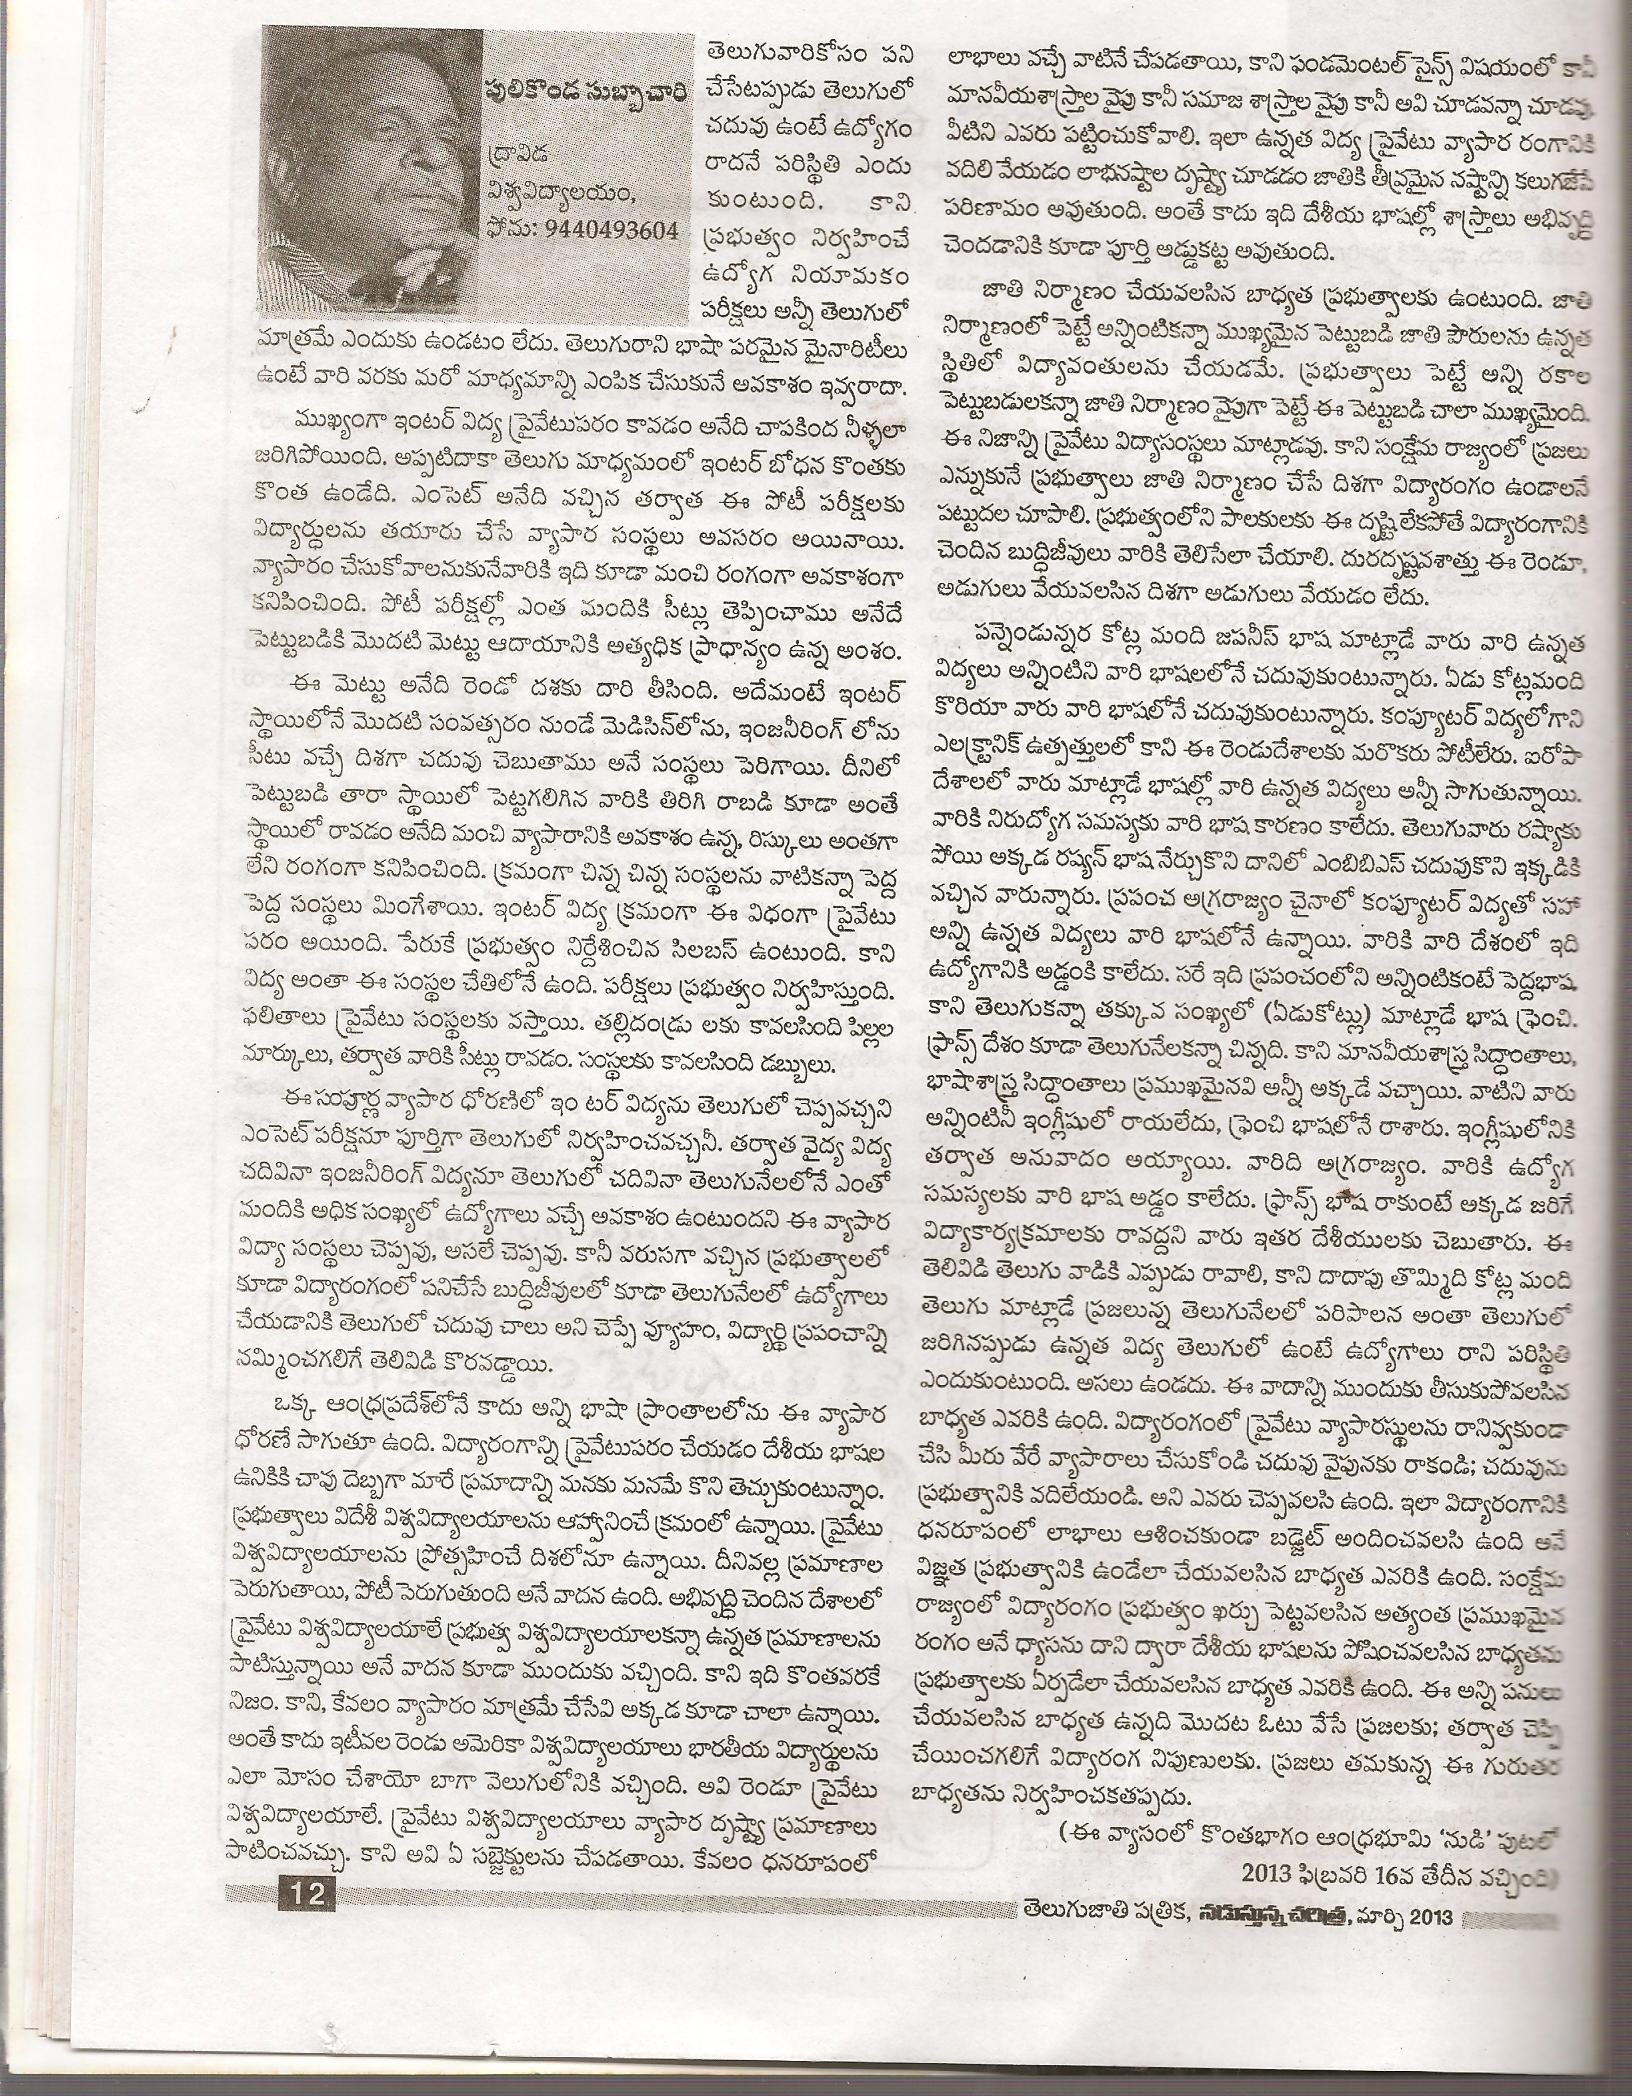 పులికొండ సుబ్బాచారి
ద్రావిడ
విశ్వవిద్యాలయం,
ఫోను: 9440493604
తెలుగువారికోసం పని
చేసేటప్పుడు తెలుగులో
చదువు ఉంటే ఉద్యోగం
రాదనే పరిస్థితి ఎందు
కుంటుంది. కాని
ప్రభుత్వం నిర్వహించే
ఉద్యోగ నియామకం
పరీక్షలు అన్నీ తెలుగులో
మాత్రమే ఎందుకు ఉండటం లేదు. తెలుగురాని భాషా పరమైన మైనారిటీలు
ఉంటే వారి వరకు మరో మాధ్యమాన్ని ఎంపిక చేసుకునే అవకాశం ఇవ్వరాదా.
ముఖ్యంగా ఇంటర్ విద్య ప్రైవేటుపరం కావడం అనేది చాపకింద నీళ్ళలా
జరిగిపోయింది. అప్పటిదాకా తెలుగు మాధ్యమంలో ఇంటర్ బోధన కొంతకు
కొంత ఉండేది. ఎంసెట్ అనేది వచ్చిన తర్వాత ఈ పోటీ పరీక్షలకు
విద్యార్థులను తయారు చేసే వ్యాపార సంస్థలు అవసరం అయినాయి.
వ్యాపారం చేసుకోవాలనుకునేవారికి ఇది కూడా మంచి రంగంగా అవకాశంగా
కనిపించింది. పోటీ పరీక్షల్లో ఎంత మందికి సీట్లు తెప్పించాము అనేదే
పెట్టుబడికి మొదటి మెట్టు ఆదాయానికి అత్యధిక ప్రాధాన్యం ఉన్న అంశం.
ఈ మెట్టు అనేది రెండో దశకు దారి తీసింది. అదేమంటే ఇంటర్
స్థాయిలోనే మొదటి సంవత్సరం నుండే మెడిసిన్‌లోను, ఇంజనీరింగ్ లోను
సీటు వచ్చే దిశగా చదువు చెబుతాము అనే సంస్థలు పెరిగాయి. దీనిలో
పెట్టుబడి తారా స్థాయిలో పెట్టగలిగిన వారికి తిరిగి రాబడి కూడా అంతే
స్థాయిలో రావడం అనేది మంచి వ్యాపారానికి అవకాశం ఉన్న, రిస్కులు అంతగా
లేని రంగంగా కనిపించింది. క్రమంగా చిన్న చిన్న సంస్థలను వాటికన్నా పెద్ద
పెద్ద సంస్థలు మింగేశాయి. ఇంటర్ విద్య క్రమంగా ఈ విధంగా ప్రైవేటు
పరం అయింది. పేరుకే ప్రభుత్వం నిర్దేశించిన సిలబస్ ఉంటుంది. కాని
విద్య అంతా ఈ సంస్థల చేతిలోనే ఉంది. పరీక్షలు ప్రభుత్వం నిర్వహిస్తుంది.
ఫలితాలు ప్రైవేటు సంస్థలకు వస్తాయి. తల్లిదండ్రు లకు కావలసింది పిల్లల
మార్కులు, తర్వాత వారికి సీట్లు రావడం. సంస్థలకు కావలసింది డబ్బులు.
ఈ సంపూర్ణ వ్యాపార ధోరణిలో ఇం టర్ విద్యను తెలుగులో చెప్పవచ్చని
ఎంసెట్ పరీక్షనూ పూర్తిగా తెలుగులో నిర్వహించవచ్చనీ. తర్వాత వైద్య విద్య
చదివినా ఇంజనీరింగ్ విద్యనూ తెలుగులో చదివినా తెలుగునేలలోనే ఎంతో
మందికి అధిక సంఖ్యలో ఉద్యోగాలు వచ్చే అవకాశం ఉంటుందని ఈ వ్యాపార
విద్యా సంస్థలు చెప్పవు, అసలే చెప్పవు. కానీ వరుసగా వచ్చిన ప్రభుత్వాలలో
కూడా విద్యారంగంలో పనిచేసే బుద్ధిజీవులలో కూడా తెలుగునేలలో ఉద్యోగాలు
చేయడానికి తెలుగులో చదువు చాలు అని చెప్పే వ్యూహం, విద్యార్థి ప్రపంచాన్ని
నమ్మించగలిగే తెలివిడి కొరవడ్డాయి.
ఒక్క ఆంధ్రప్రదేశ్‌లోనే కాదు అన్ని భాషా ప్రాంతాలలోను ఈ వ్యాపార
ధోరణే సాగుతూ ఉంది. విద్యారంగాన్ని ప్రైవేటుపరం చేయడం దేశీయ భాషల
ఉనికికి చావు దెబ్బగా మారే ప్రమాదాన్ని మనకు మనమే కొని తెచ్చుకుంటున్నాం.
ప్రభుత్వాలు విదేశీ విశ్వవిద్యాలయాలను ఆహ్వానించే క్రమంలో ఉన్నాయి. ప్రైవేటు
విశ్వవిద్యాలయాలను ప్రోత్సహించే దిశలోనూ ఉన్నాయి. దీనివల్ల ప్రమాణాల
పెరుగుతాయి, పోటీ పెరుగుతుంది అనే వాదన ఉంది. అభివృద్ధి చెందిన దేశాలలో
ప్రైవేటు విశ్వవిద్యాలయాలే ప్రభుత్వ విశ్వవిద్యాలయాలకన్నా ఉన్నత ప్రమాణాలను
పాటిస్తున్నాయి అనే వాదన కూడా ముందుకు వచ్చింది. కాని ఇది కొంతవరకే
నిజం. కాని, కేవలం వ్యాపారం మాత్రమే చేసేవి అక్కడ కూడా చాలా ఉన్నాయి.
అంతే కాదు ఇటీవల రెండు అమెరికా విశ్వవిద్యాలయాలు భారతీయ విద్యార్థులను
ఎలా మోసం చేశాయో బాగా వెలుగులోనికి వచ్చింది. అవి రెండూ ప్రైవేటు
విశ్వవిద్యాలయాలే. ప్రైవేటు విశ్వవిద్యాలయాలు వ్యాపార దృష్ట్యా ప్రమాణాలు
పాటించవచ్చు. కాని అవి ఏ సబ్జెక్టులను చేపడతాయి. కేవలం ధనరూపంలో
లాభాలు వచ్చే వాటినే చేపడతాయి, కాని ఫండమెంటల్ సైన్స్ విషయంలో కానీ
మానవీయశాస్త్రాల వైపు కానీ సమాజ శాస్త్రాల వైపు కానీ అవి చూడవన్నా చూడవు.
వీటిని ఎవరు పట్టించుకోవాలి. ఇలా ఉన్నత విద్య ప్రైవేటు వ్యాపార రంగానికి
వదిలి వేయడం లాభనష్టాల దృష్ట్యా చూడడం జాతికి తీవ్రమైన నష్టాన్ని కలుగజేసే
పరిణామం అవుతుంది. అంతే కాదు ఇది దేశీయ భాషల్లో శాస్త్రాలు అభివృద్ధి
చెందడానికి కూడా పూర్తి అడ్డుకట్ట అవుతుంది.
జాతి నిర్మాణం చేయవలసిన బాధ్యత ప్రభుత్వాలకు ఉంటుంది. జాతి
నిర్మాణంలో పెట్టే అన్నింటికన్నా ముఖ్యమైన పెట్టుబడి జాతి పౌరులను ఉన్నత
స్థితిలో విద్యావంతులను చేయడమే. ప్రభుత్వాలు పెట్టే అన్ని రకాల
పెట్టుబడులకన్నా జాతి నిర్మాణం వైపుగా పెట్టే ఈ పెట్టుబడి చాలా ముఖ్యమైంది.
ఈ నిజాన్ని ప్రైవేటు విద్యాసంస్థలు మాట్లాడవు. కాని సంక్షేమ రాజ్యంలో ప్రజలు
ఎన్నుకునే ప్రభుత్వాలు జాతి నిర్మాణం చేసే దిశగా విద్యారంగం ఉండాలనే
పట్టుదల చూపాలి. ప్రభుత్వంలోని పాలకులకు ఈ దృష్టి లేకపోతే విద్యారంగానికి
చెందిన బుద్ధిజీవులు వారికి తెలిసేలా చేయాలి. దురదృష్టవశాత్తు ఈ రెండూ,
అడుగులు వేయవలసిన దిశగా అడుగులు వేయడం లేదు.
పన్నెండున్నర కోట్ల మంది జపనీస్ భాష మాట్లాడే వారు వారి ఉన్నత
విద్యలు అన్నింటిని వారి భాషలలోనే చదువుకుంటున్నారు. ఏడు కోట్లమంది
కొరియా వారు వారి భాషలోనే చదువుకుంటున్నారు. కంప్యూటర్ విద్యలోగాని
ఎలక్ట్రానిక్ ఉత్పత్తులలో కాని ఈ రెండుదేశాలకు మరొకరు పోటీలేరు. ఐరోపా
దేశాలలో వారు మాట్లాడే భాషల్లో వారి ఉన్నత విద్యలు అన్నీ సాగుతున్నాయి.
వారికి నిరుద్యోగ సమస్యకు వారి భాష కారణం కాలేదు. తెలుగువారు రష్యాకు
పోయి అక్కడ రష్యన్ భాష నేర్చుకొని దానిలో ఎంబిబిఎస్ చదువుకొని ఇక్కడికి
వచ్చిన వారున్నారు. ప్రపంచ అగ్రరాజ్యం చైనాలో కంప్యూటర్ విద్యతో సహా
అన్ని ఉన్నత విద్యలు వారి భాషలోనే ఉన్నాయి. వారికి వారి దేశంలో ఇది
ఉద్యోగానికి అడ్డంకి కాలేదు. సరే ఇది ప్రపంచంలోని అన్నింటికంటే పెద్దభాష,
కాని తెలుగుకన్నా తక్కువ సంఖ్యలో (ఏడుకోట్లు) మాట్లాడే భాష ఫ్రెంచి.
ఫ్రాన్స్ దేశం కూడా తెలుగునేలకన్నా చిన్నది. కాని మానవీయశాస్త్ర సిద్ధాంతాలు,
భాషాశాస్త్ర సిద్ధాంతాలు ప్రముఖమైనవి అన్నీ అక్కడే వచ్చాయి. వాటిని వారు
అన్నింటినీ ఇంగ్లీషులో రాయలేదు, ఫ్రెంచి భాషలోనే రాశారు. ఇంగ్లీషులోనికి
తర్వాత అనువాదం అయ్యాయి. వారిది అగ్రరాజ్యం. వారికి ఉద్యోగ
సమస్యలకు వారి భాష అడ్డం కాలేదు. ఫ్రాన్స్ భాష రాకుంటే అక్కడ జరిగే
విద్యాకార్యక్రమాలకు రావద్దని వారు ఇతర దేశీయులకు చెబుతారు. ఈ
తెలివిడి తెలుగు వాడికి ఎప్పుడు రావాలి, కాని దాదాపు తొమ్మిది కోట్ల మంది
తెలుగు మాట్లాడే ప్రజలున్న తెలుగునేలలో పరిపాలన అంతా తెలుగులో
జరిగినప్పుడు ఉన్నత విద్య తెలుగులో ఉంటే ఉద్యోగాలు రాని పరిస్థితి
ఎందుకుంటుంది. అసలు ఉండదు. ఈ వాదాన్ని ముందుకు తీసుకుపోవలసిన
బాధ్యత ఎవరికి ఉంది. విద్యారంగంలో ప్రైవేటు వ్యాపారస్థులను రానివ్వకుండా
చేసి మీరు వేరే వ్యాపారాలు చేసుకోండి చదువు వైపునకు రాకండి; చదువును
ప్రభుత్వానికి వదిలేయండి. అని ఎవరు చెప్పవలసి ఉంది. ఇలా విద్యారంగానికి
ధనరూపంలో లాభాలు ఆశించకుండా బడ్జెట్ అందించవలసి ఉంది అనే
విజ్ఞత ప్రభుత్వానికి ఉండేలా చేయవలసిన బాధ్యత ఎవరికి ఉంది. సంక్షేమ
రాజ్యంలో విద్యారంగం ప్రభుత్వం ఖర్చు పెట్టవలసిన అత్యంత ప్రముఖమైన
రంగం అనే ధ్యాసను దాని ద్వారా దేశీయ భాషలను పోషించవలసిన బాధ్యతను
ప్రభుత్వాలకు ఏర్పడేలా చేయవలసిన బాధ్యత ఎవరికి ఉంది. ఈ అన్ని పనులు
చేయవలసిన బాధ్యత ఉన్నది మొదట ఓటు వేసే ప్రజలకు; తర్వాత చెప్పి
చేయించగలిగే విద్యారంగ నిపుణులకు. ప్రజలు తమకున్న ఈ గురుతర
బాధ్యతను నిర్వహించకతప్పదు.
(ఈ వ్యాసంలో కొంతభాగం ఆంధ్రభూమి 'నుడి' పుటలో
2013 ఫిబ్రవరి 16వ తేదీన వచ్చింది)
12
తెలుగుజాతి పత్రిక, నడుస్తున్న చరిత్ర, మార్చి 2013